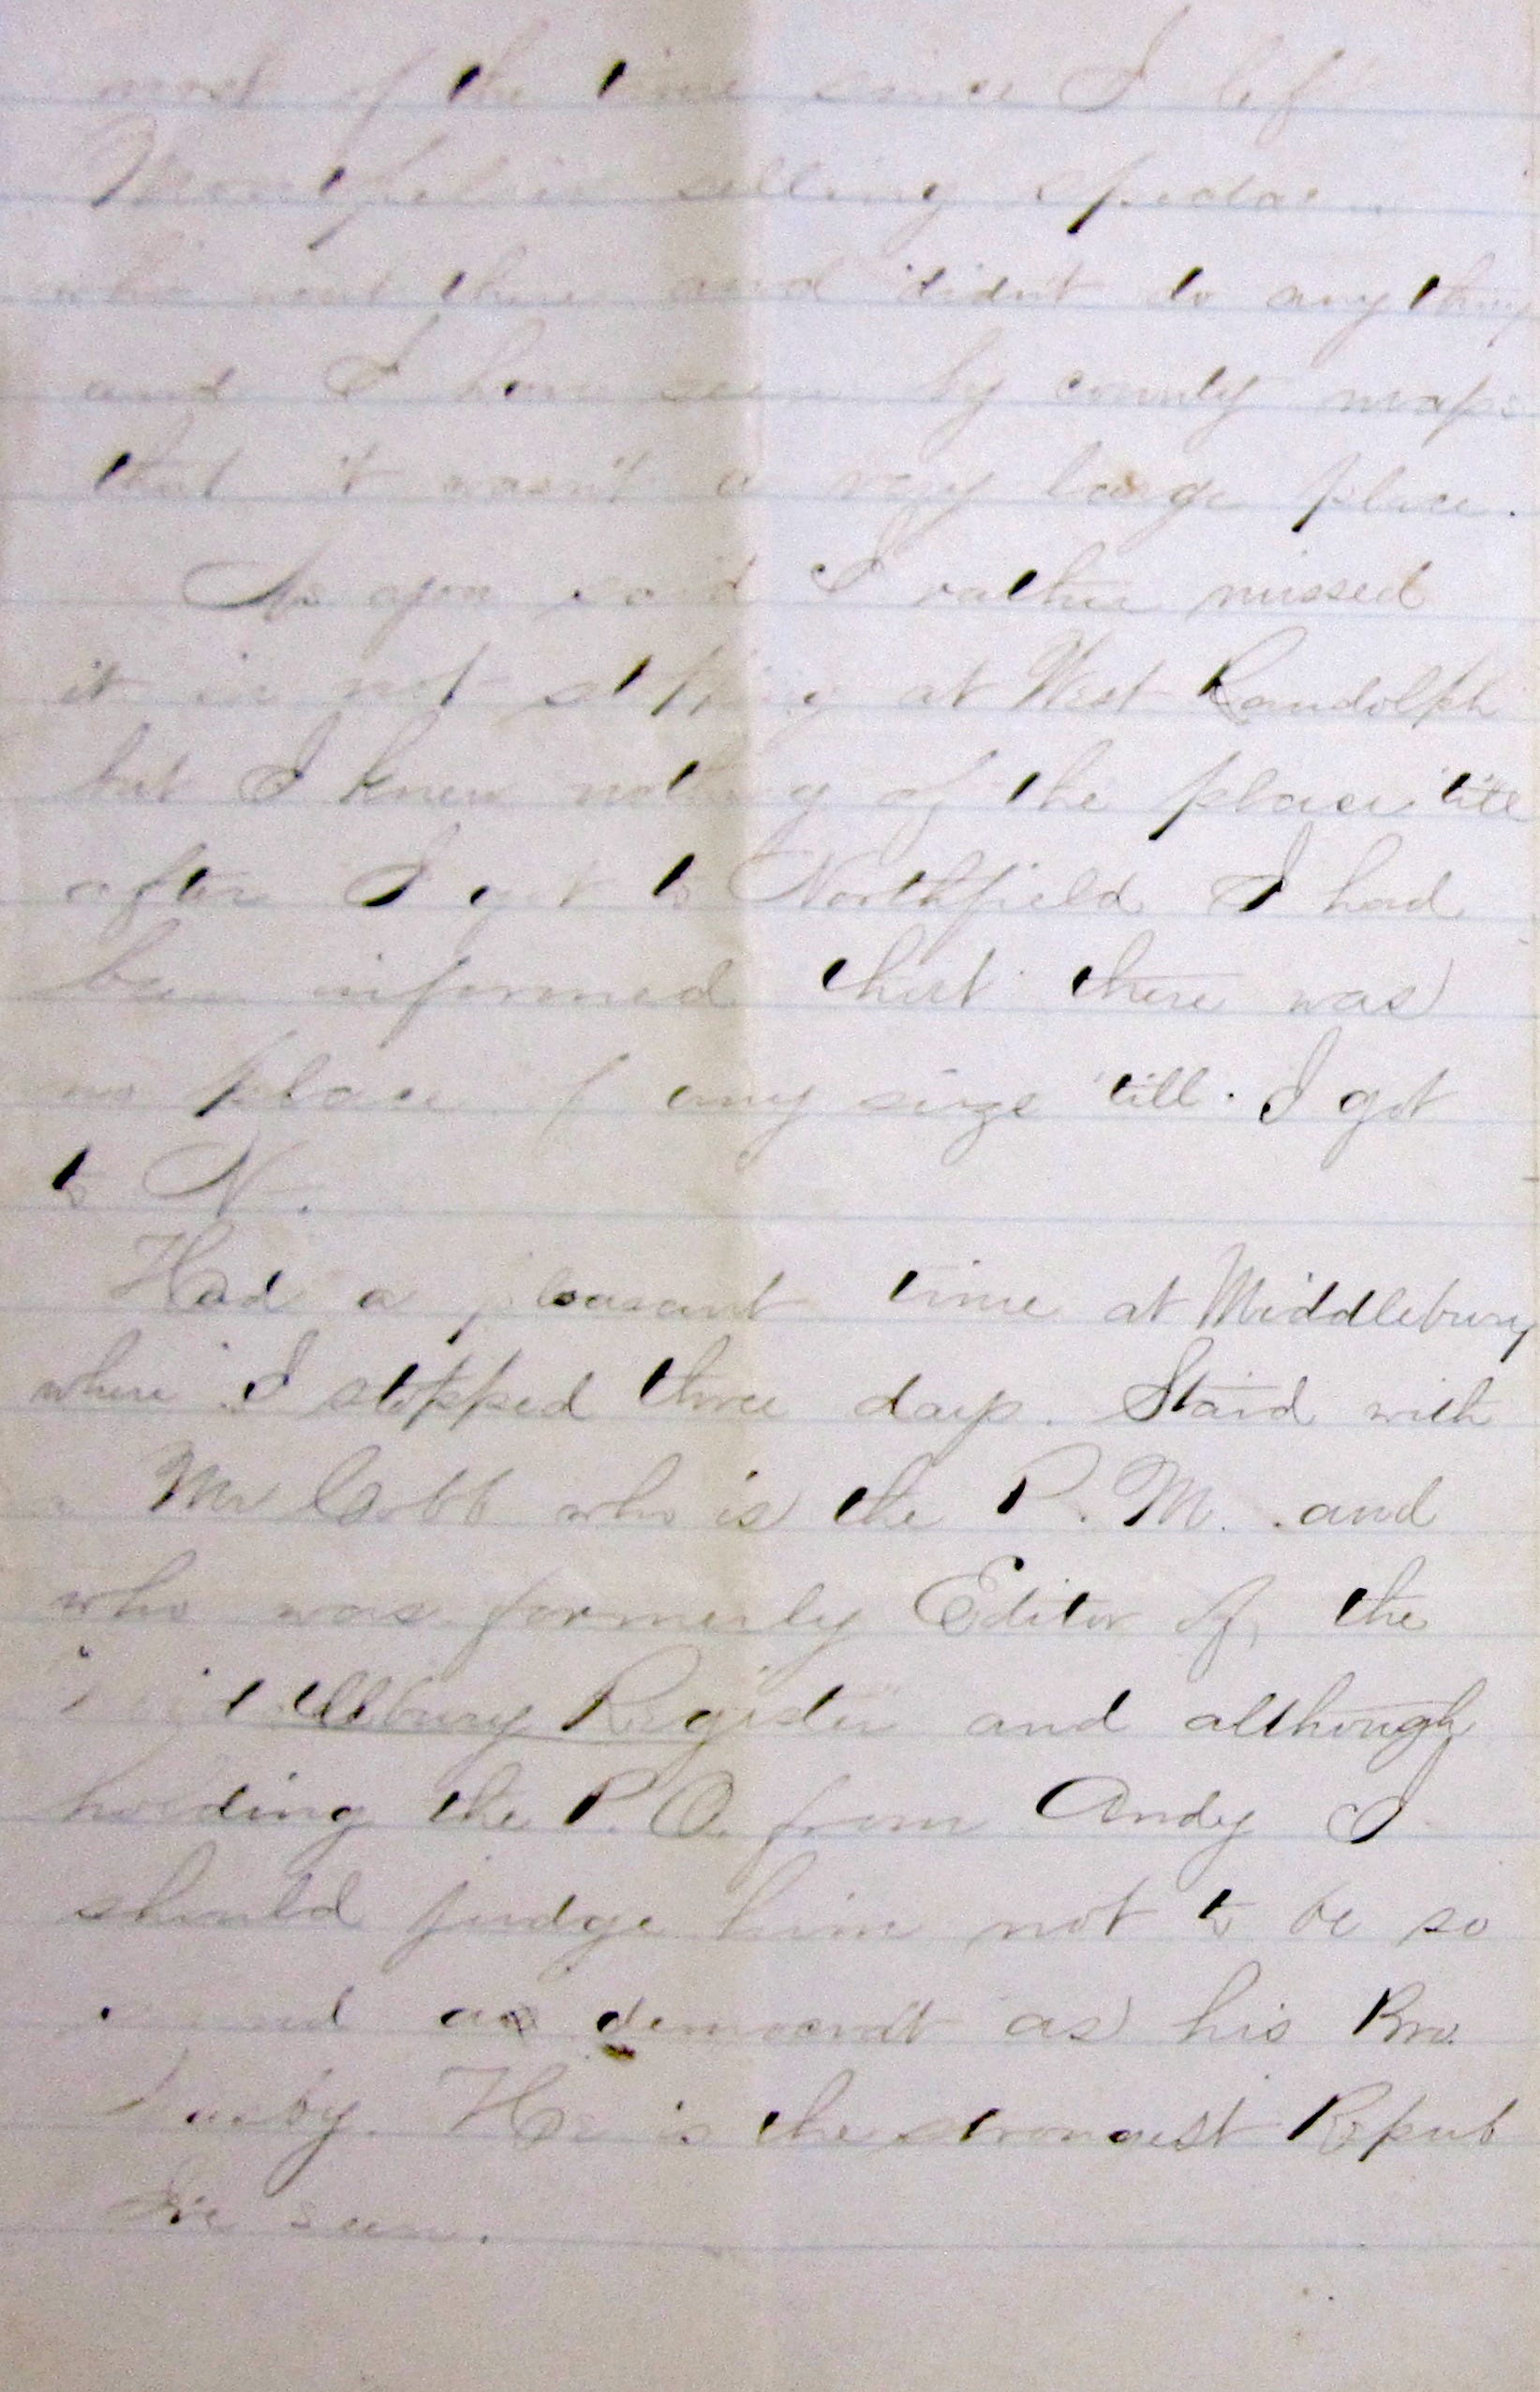 most of the time since I left
Montpelier selling
who went there and didn't do anything
and I have seen by county maps
that it wasn't a very large place.
As you said I rather missed
it in not stopping at West Randolph
but I knew nothing of the place till
after I got to Northfield I had
been informed that there was
no place of any size till I got
to N.
Had a pleasant time at Middlebury
where I stopped three days. Staid with
a Mr Cobb who is the P. M. and
who was formerly Editor of the
Middlebury Register and although
holding the P. O. from Andy I
should judge him not to be so
as democrat as his Bro.
He is the strongest Repub
I've seen.